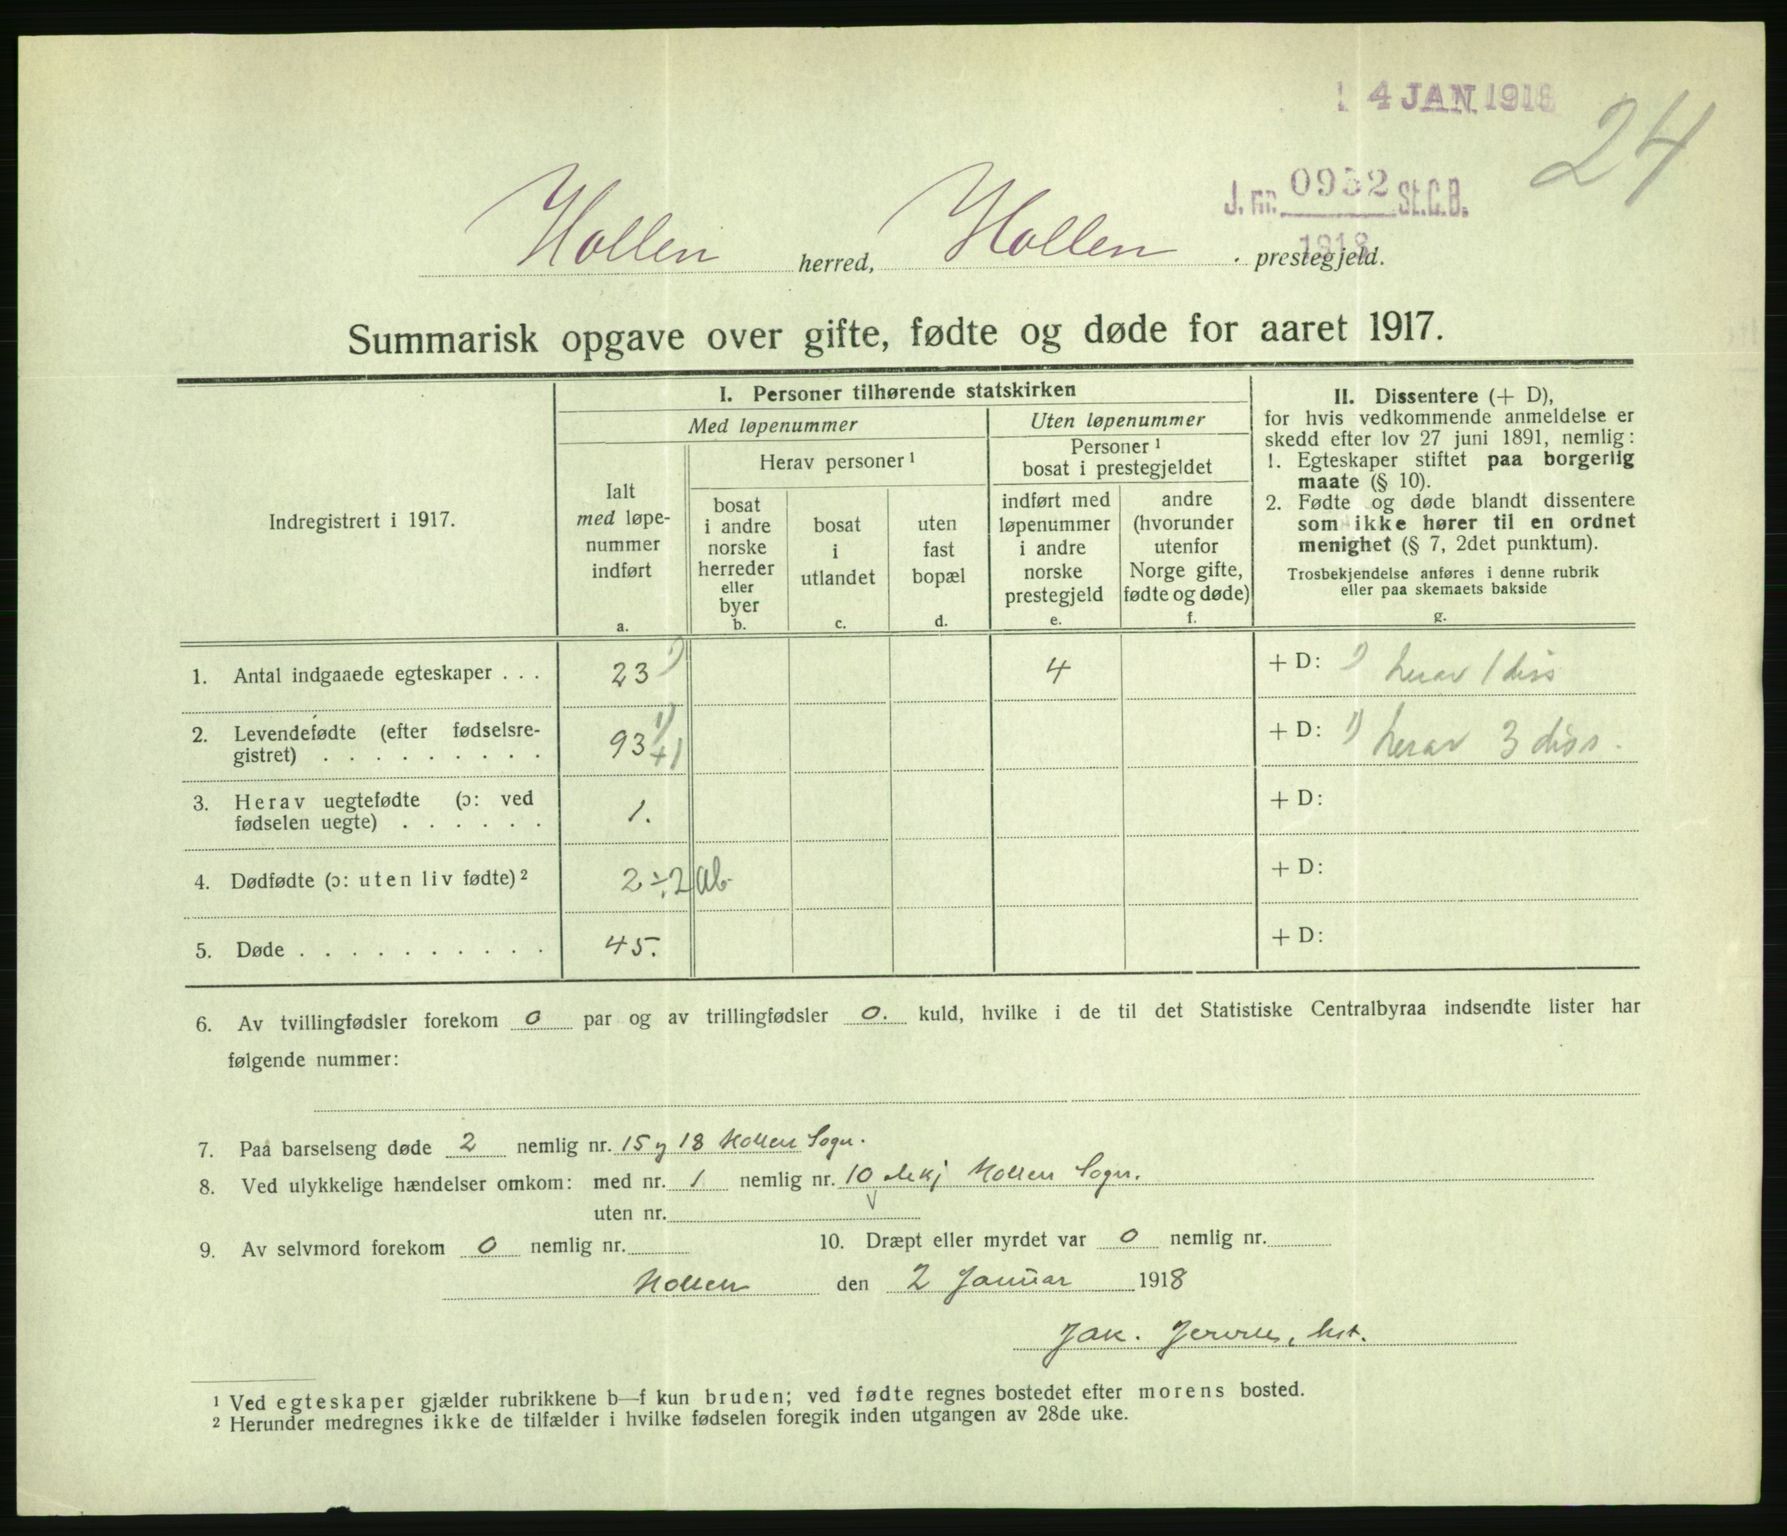 4 JAN. 1918
24
J. nr. 0952 St.C.B.
1918
Hollen herred, Hollen prestegjeld.
Summarisk opgave over gifte, fødte og døde for aaret 1917.
Indregistrert i 1917.
I. Personer tilhørende statskirken
Med løpenummer
Uten løpenummer
Ialt
med løpe-
nummer
indført
a.
Herav personer ¹
bosat
i andre
norske
herreder
eller
byer
b.
bosat
i
utlandet
c.
uten
fast
bopæl
d.
Personer ¹
bosat i prestegjeldet
indført med
løpenummer
i andre
norske
prestegjeld
e.
andre
(hvorunder
utenfor
Norge gifte,
fødte og døde)
f.
II. Dissentere (+ D),
for hvis vedkommende anmeldelse er
skedd efter lov 27 juni 1891, nemlig:
1. Egteskaper stiftet paa borgerlig
maate (§ 10).
2. Fødte og døde blandt dissentere
som ikke hører til en ordnet
menighet (§ 7, 2det punktum).
Trosbekjendelse anføres i denne rubrik
eller paa skemaets bakside
g.
1. Antal indgaaede egteskaper . . . 23 ¹) 4 + D: ¹) herav 1 diss
2. Levendefødte (efter fødselsre-
gistret) . . . . . . . . . 93 ¹) +1 + D: ¹) herav 3 diss.
3. Herav uegtefødte (ɔ: ved
fødselen uegte) . . . . . . 1. + D:
4. Dødfødte (ɔ: uten liv fødte) ² 2 ÷ 2 ab. + D:
5. Døde . . . . . . . . . . 45. + D:
6. Av tvillingfødsler forekom 0 par og av trillingfødsler 0. kuld, hvilke i de til det Statistiske Centralbyraa indsendte lister har
følgende nummer:
7. Paa barselseng døde 2 nemlig nr. 15 og 18 Hollen Sogn.
8. Ved ulykkelige hændelser omkom: med nr. 1 nemlig nr. 10 Mkj Hollen Sogn.
uten nr.
9. Av selvmord forekom 0 nemlig nr. 10. Dræpt eller myrdet var 0 nemlig nr.
Hollen den 2 Januar 1918
Jak.
¹ Ved egteskaper gjælder rubrikkene b—f kun bruden; ved fødte regnes bostedet efter morens bosted.
² Herunder medregnes ikke de tilfælder i hvilke fødselen foregik inden utgangen av 28de uke.